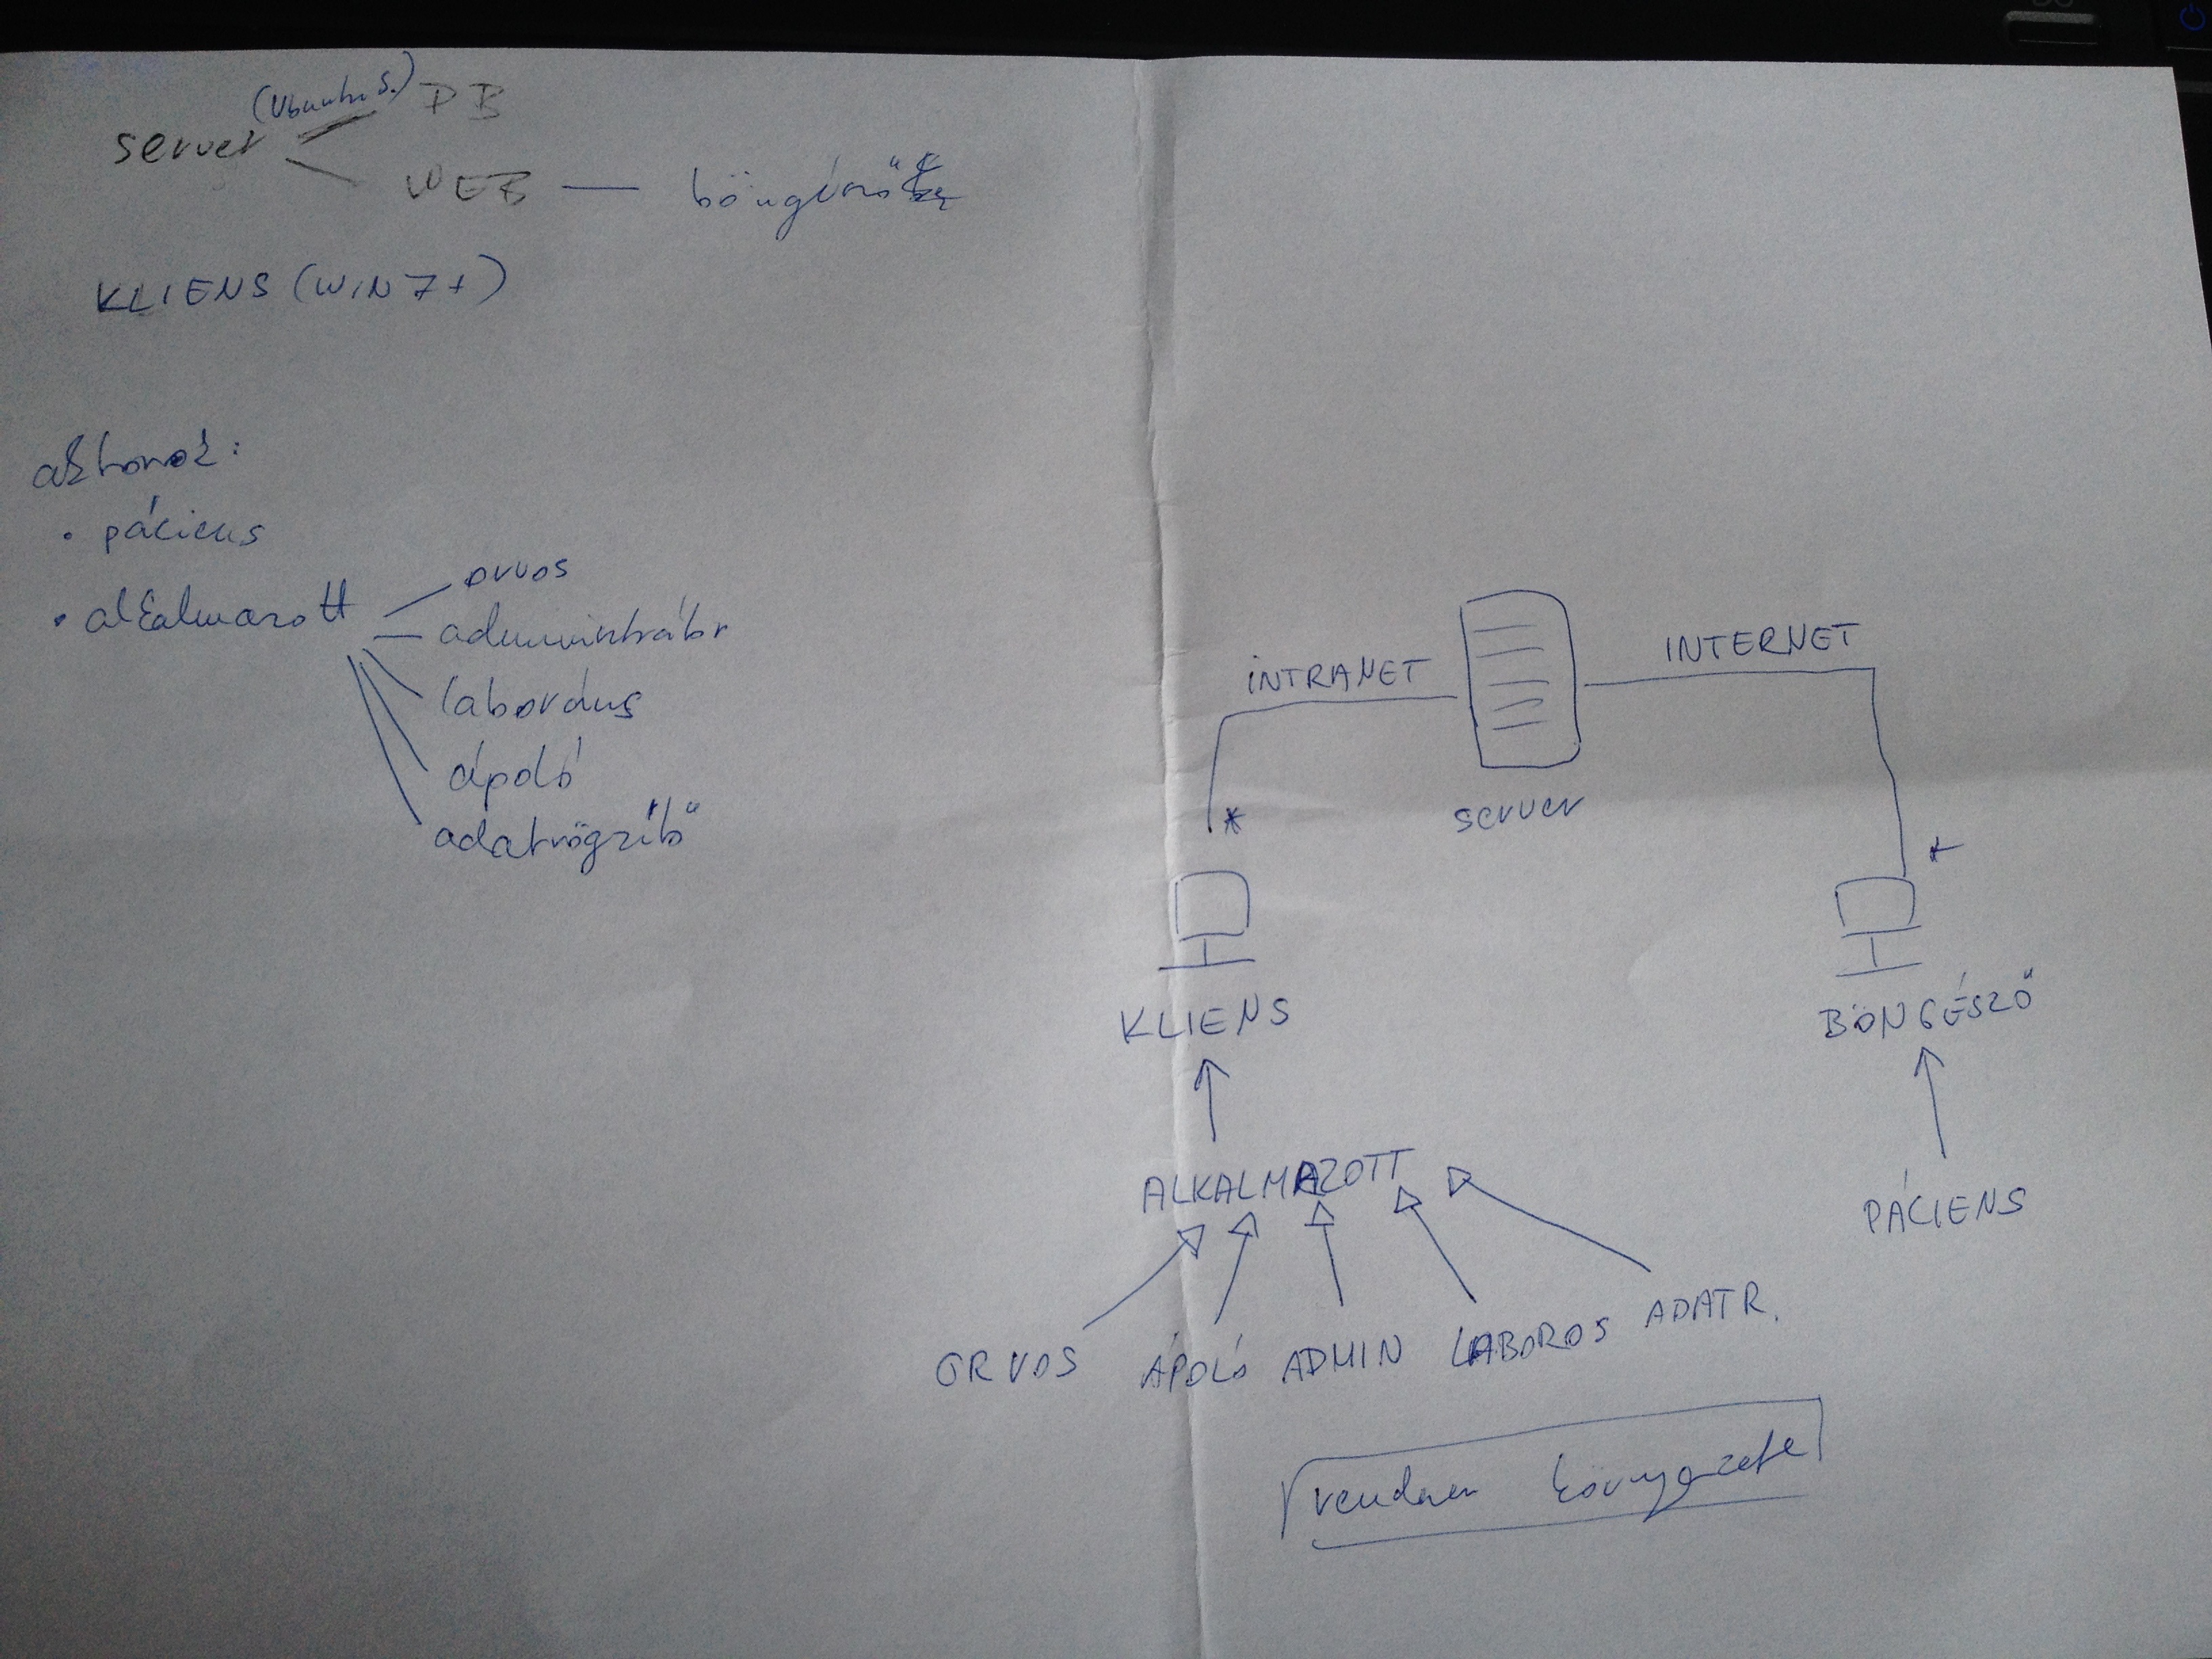 server (Ubuntu S.) DB
WEB — böngésző
KLIENS (WIN 7+)
aktorok:
• páciens
• alkalmazott
orvos
adminisztrátor
laboráns
ápoló
adatrögzítő
INTRANET
INTERNET
server
*
*
KLIENS
BÖNGÉSZŐ
ALKALMAZOTT
PÁCIENS
ORVOS ÁPOLÓ ADMIN LABOROS ADATR.
rendszer környezete